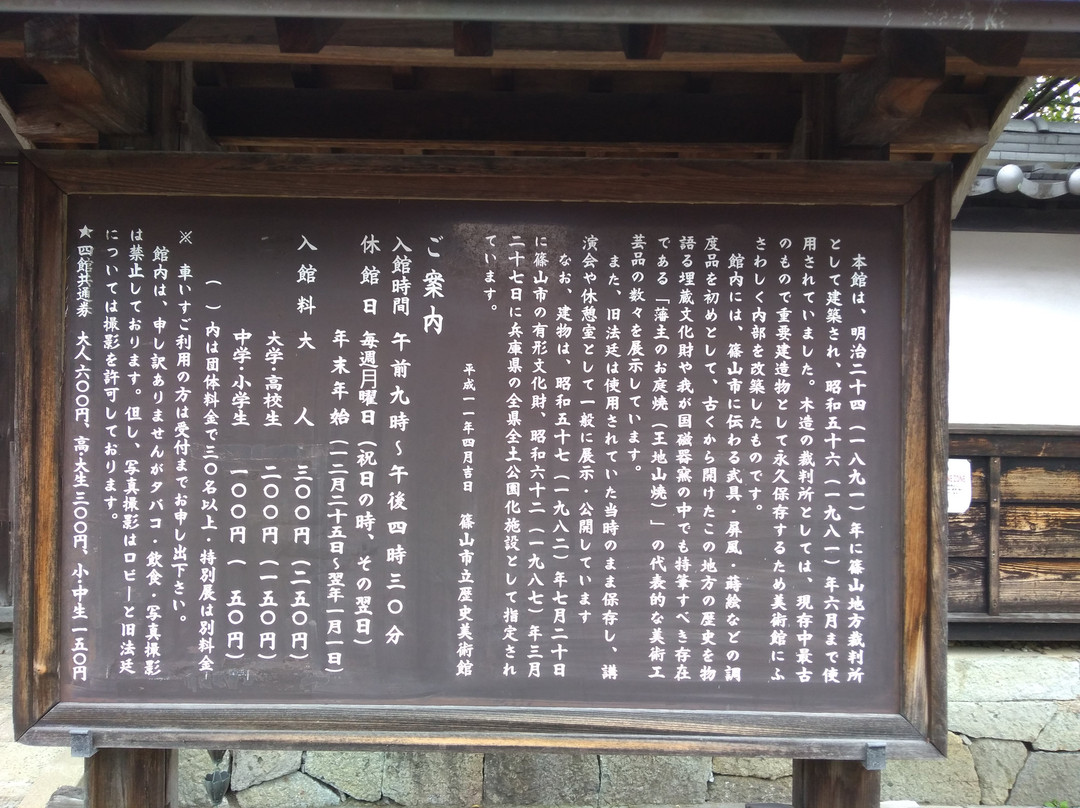 本館は、明治二十四（一八九一）年に篠山地方裁判所
として建築され、昭和五十六（一九八一）年六月まで使
用されていました。木造の裁判所としては、現存中最古
のもので重要建造物として永久保存するため美術館にふ
さわしく内部を改築したものです。
館内には、篠山市に伝わる武具・屏風・蒔絵などの調
度品を初めとして、古くから開けたこの地方の歴史を物
語る埋蔵文化財や我が国磁器窯の中でも特筆すべき存在
である「藩主のお庭焼（王地山焼）」の代表的な美術工
芸品の数々を展示しています。
また、旧法廷は使用されていた当時のまま保存し、講
演会や休憩室として一般に展示・公開しています
なお、建物は、昭和五十七（一九八二）年七月二十日
に篠山市の有形文化財、昭和六十二（一九八七）年三月
二十七日に兵庫県の全県全土公園化施設として指定され
ています。
平成一一年四月吉日 篠山市立歴史美術館
ご案内
入館時間 午前九時～午後四時三〇分
休館日 毎週月曜日（祝日の時、その翌日）
年末年始（一二月二十五日～翌年一月一日）
入館料 大人 三〇〇円（二五〇円）
大学・高校生 二〇〇円（一五〇円）
中学・小学生 一〇〇円（ 五〇円）
（ ）内は団体料金で三〇名以上・特別展は別料金
※ 車いすご利用の方は受付までお申し出下さい。
館内は、申し訳ありませんがタバコ・飲食・写真撮影
は禁止しております。但し、写真撮影はロビーと旧法廷
については撮影を許可しております。
★四館共通券 大人六〇〇円、高・大生三〇〇円、小・中生一五〇円